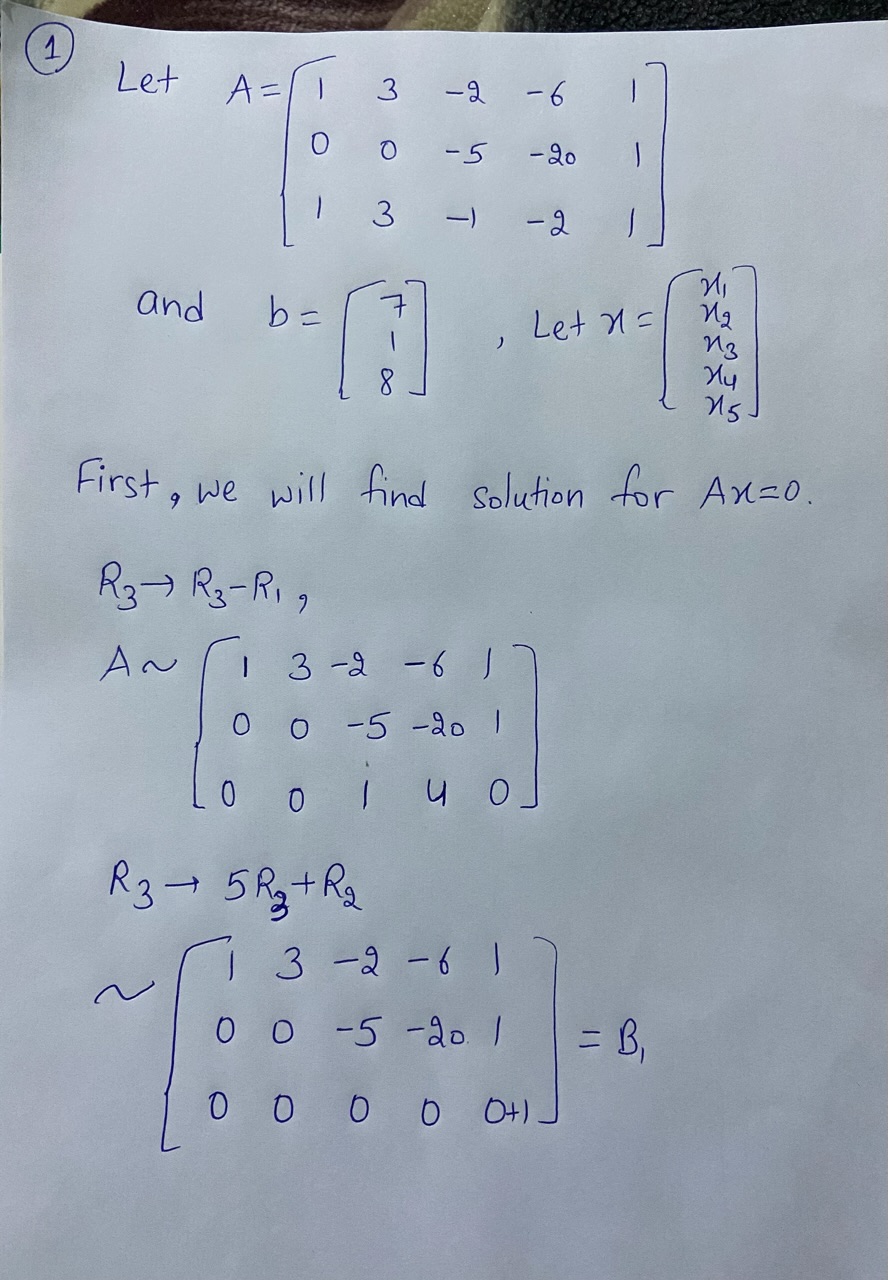 ①
Let A = [ 1 3 -2 -6 1
0 0 -5 -20 1
1 3 -1 -2 1 ]
and b = [ 7
1
8 ] , Let x = [ x₁
x₂
x₃
x₄
x₅ ]
First, we will find solution for Ax=0.
R₃ → R₃-R₁ ,
A ~ [ 1 3 -2 -6 1
0 0 -5 -20 1
0 0 1 4 0 ]
R₃ → 5R₃+R₂
~ [ 1 3 -2 -6 1
0 0 -5 -20 1
0 0 0 0 0+1 ] = B₁